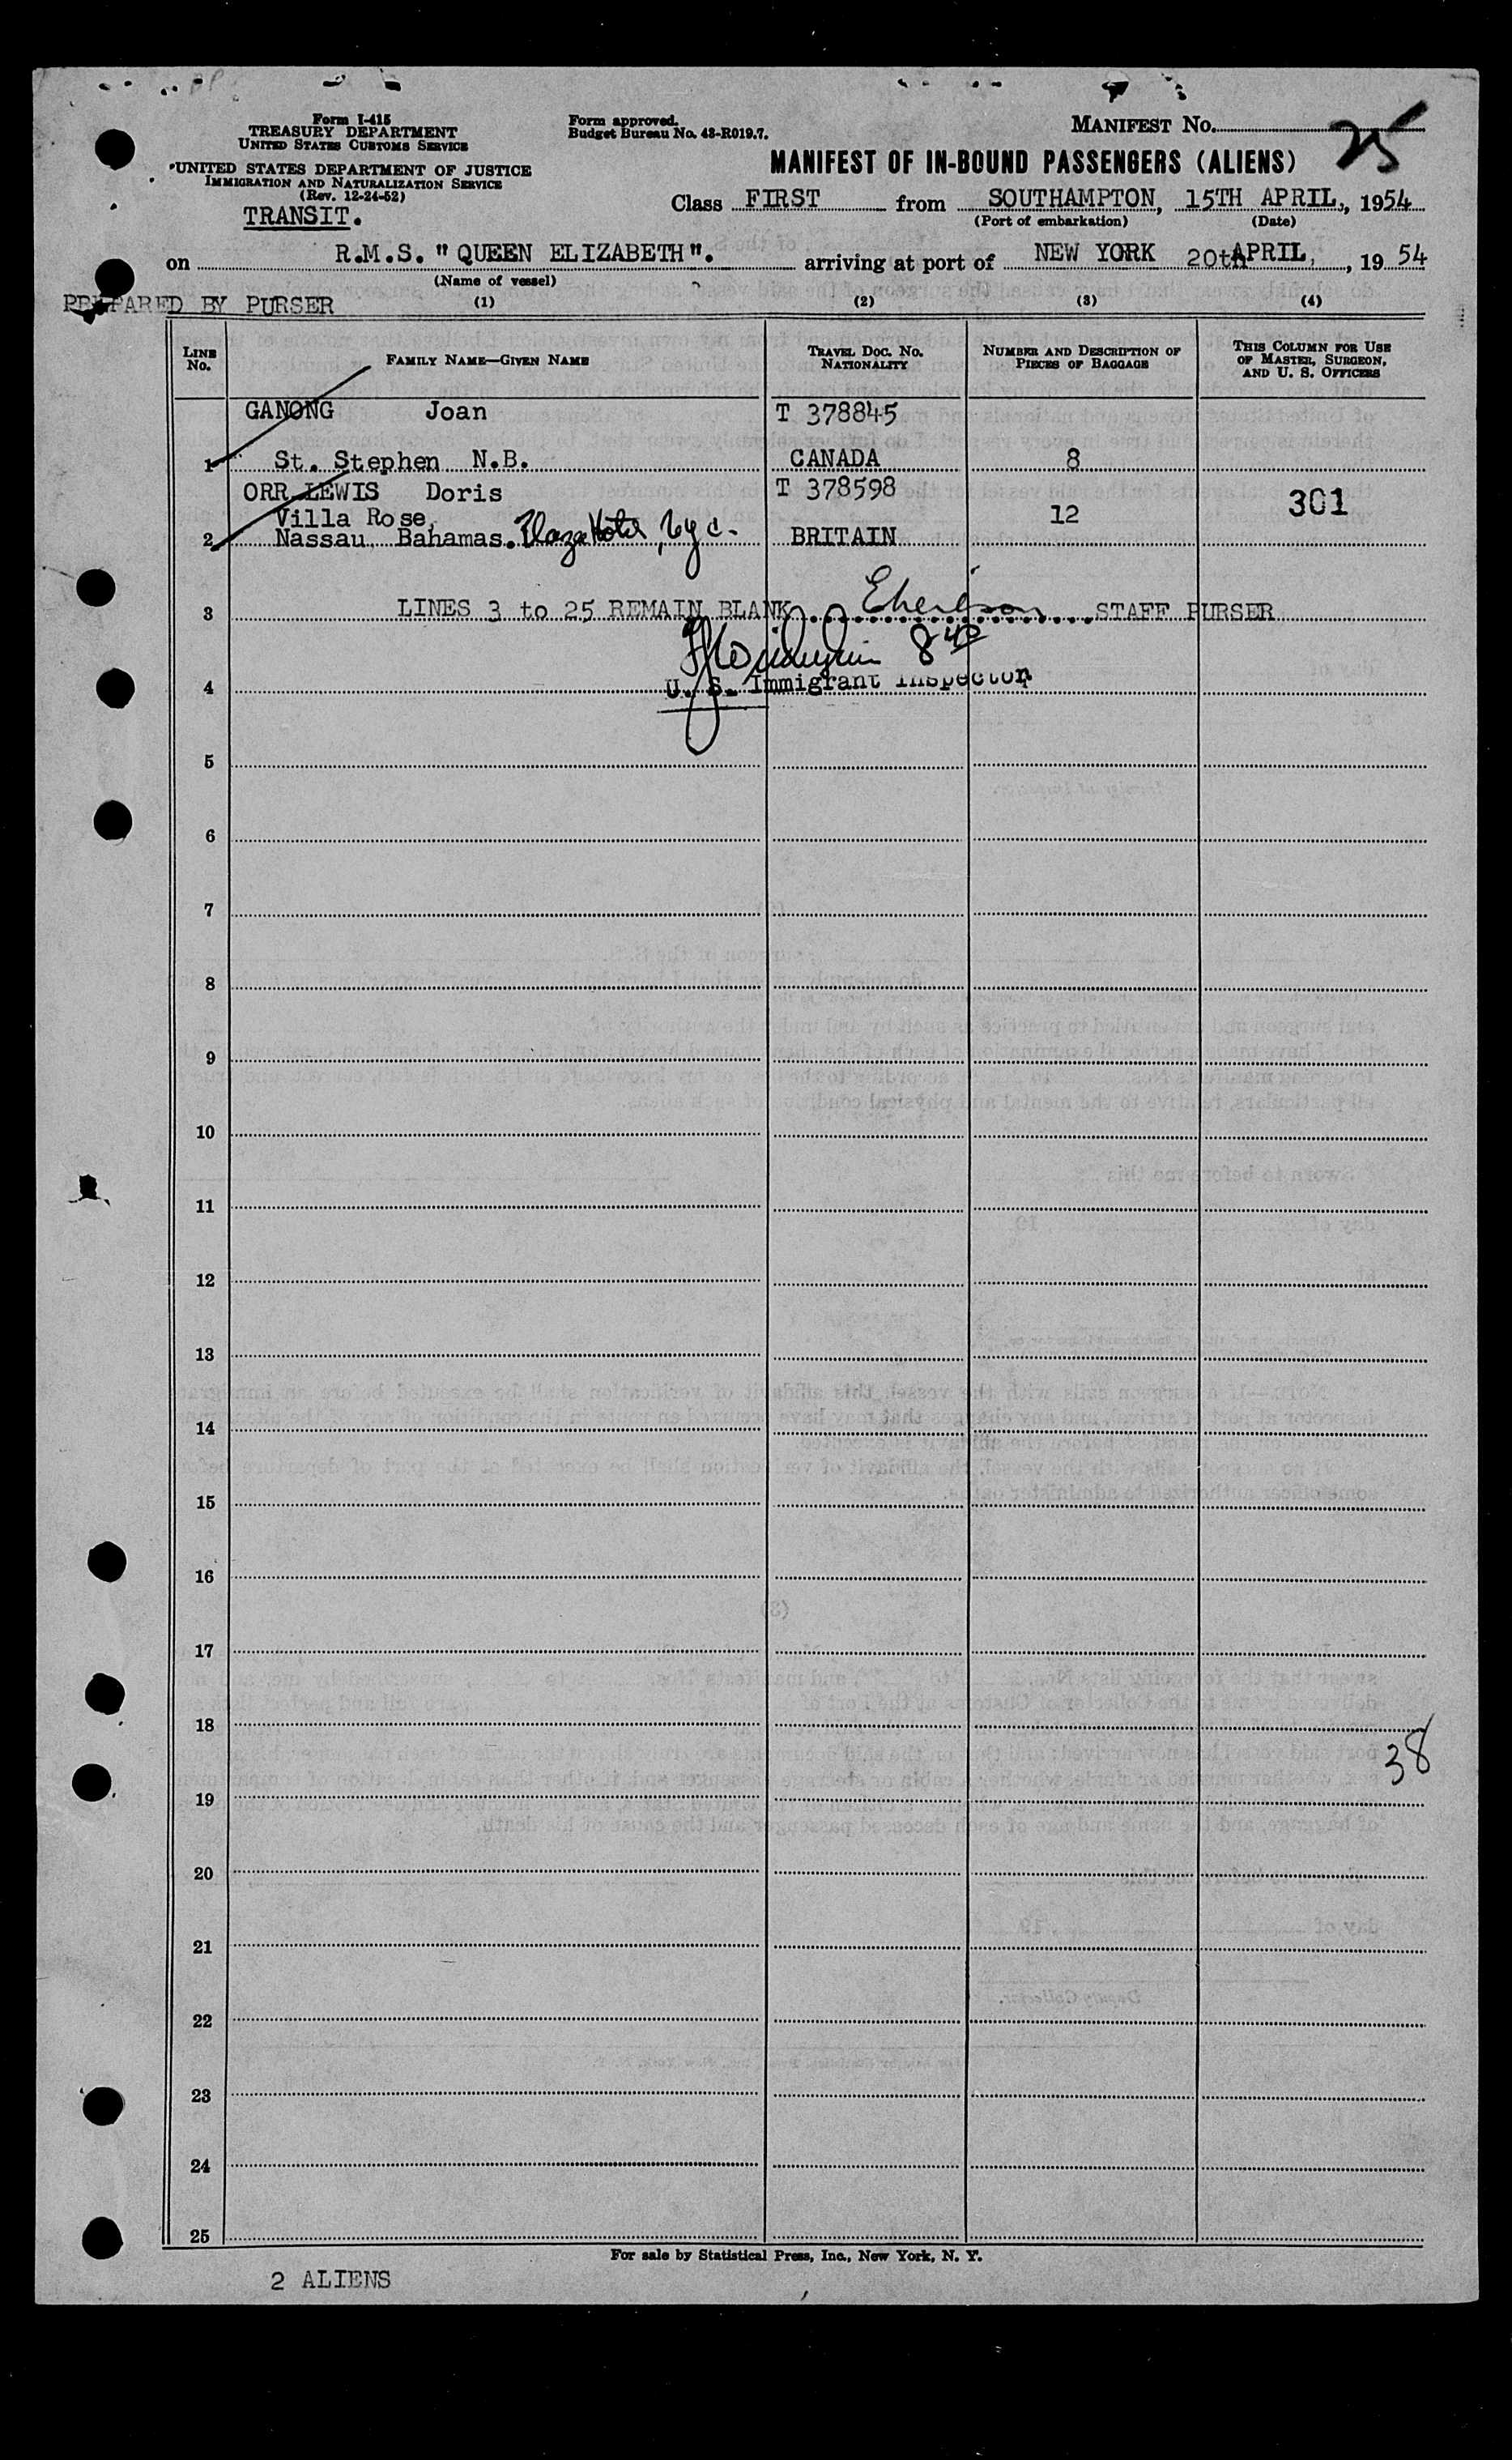 Form I-415
TREASURY DEPARTMENT
UNITED STATES CUSTOMS SERVICE
UNITED STATES DEPARTMENT OF JUSTICE
IMMIGRATION AND NATURALIZATION SERVICE
(Rev. 12-24-52)
TRANSIT.
Form approved.
Budget Bureau No. 43-R019.7.
MANIFEST No. 25
MANIFEST OF IN-BOUND PASSENGERS (ALIENS)
Class FIRST from SOUTHAMPTON, 15TH APRIL, 1954
(Port of embarkation) (Date)
on R.M.S. "QUEEN ELIZABETH". arriving at port of NEW YORK 20th APRIL, 1954
(Name of vessel)
PREPARED BY PURSER
(1) (2) (3) (4)
LINE No. FAMILY NAME—GIVEN NAME TRAVEL DOC. NO. NATIONALITY NUMBER AND DESCRIPTION OF PIECES OF BAGGAGE THIS COLUMN FOR USE OF MASTER, SURGEON, AND U. S. OFFICERS
GANONG Joan T 378845
1 St. Stephen N.B. CANADA 8
ORR LEWIS Doris T 378598 301
Villa Rose, 12
2 Nassau Bahamas. Plaza Hotel, nyc. BRITAIN
3 LINES 3 to 25 REMAIN BLANK STAFF PURSER
840
4 U. S. Immigrant Inspector
5
6
7
8
9
10
11
12
13
14
15
16
17
18
38
19
20
21
22
23
24
25
For sale by Statistical Press, Inc., New York, N. Y.
2 ALIENS